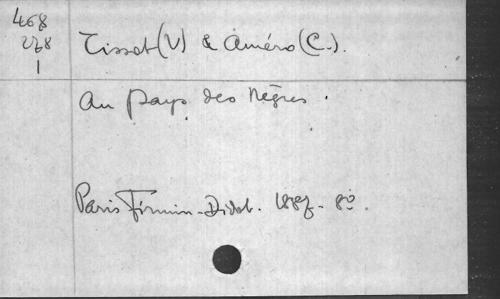 468
278
1
Tissot (V) & Améro (C.).
Au pays des Nègres.
Paris Firmin-Didot. 1887. 8º.